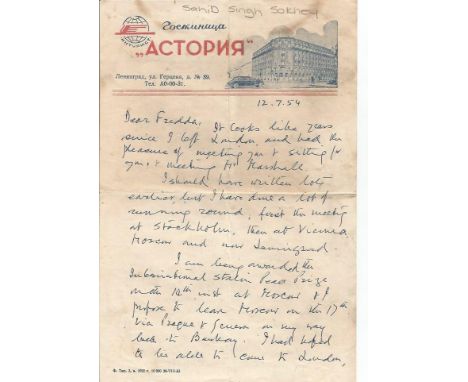 Sahib Singh Sokhey
Гостиница
„АСТОРИЯ"
Ленинград, ул. Герцена, д. № 39.
Тел. А0-00-31.
12.7.54
Dear Fredda, It looks like years
since I left London, and had the
pleasure of meeting you & sitting for
you & meeting Mr Marshall
I should have written lots
earlier but I have done a lot of
running round, first the meeting
at Stockholm, then at Vienna
Moscow and now Leningrad
I am being awarded the
International Stalin Peace Prize
on the 14th inst at Moscow & I
propose to leave Moscow on the 17th
via Prague & Geneva on my way
back to Bombay. I had hoped
to be able to come to London,